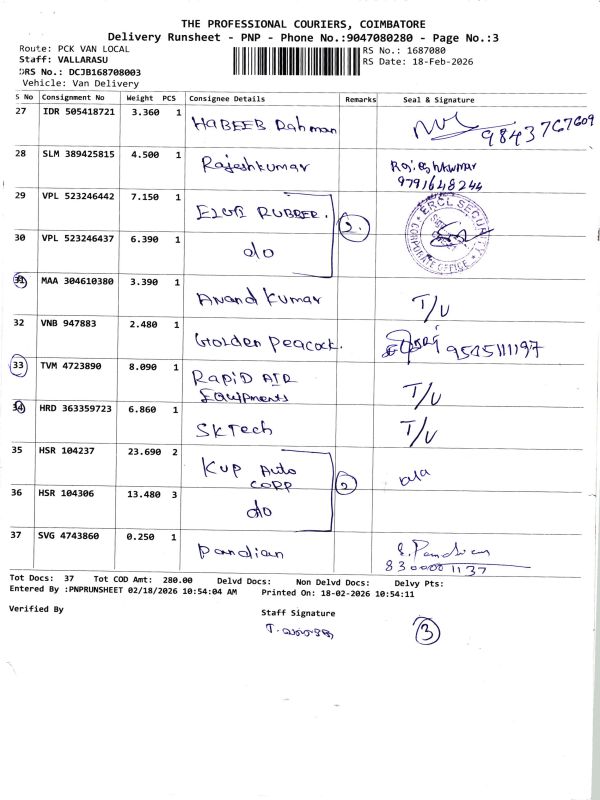 THE PROFESSIONAL COURIERS, COIMBATORE
Delivery Runsheet - PNP - Phone No.:9047080280 - Page No.:3
Route: PCK VAN LOCAL
RS No.: 1687080
Staff: VALLARASU
RS Date: 18-Feb-2026
DRS No.: DCJB168708003
Vehicle: Van Delivery
S No Consignment No Weight PCS Consignee Details Remarks Seal & Signature
27 IDR 505418721 3.360 1 HABEEB Rahman 9843767609
28 SLM 389425815 4.500 1 Rajeshkumar Rajeshkumar
9791648244
29 VPL 523246442 7.150 1 ELGI RUBBER.
30 VPL 523246437 6.390 1 do
ERCL SECURITY
CORPORATE OFFICE
31 MAA 304610380 3.390 1 Anand Kumar T/U
32 VNB 947883 2.480 1 Golden Peacock. 9545111197
33 TVM 4723890 8.090 1 RAPID AIR
Equipments T/U
34 HRD 363359723 6.860 1 SK Tech T/U
35 HSR 104237 23.690 2 KUP Auto
CORP 2
36 HSR 104306 13.480 3 do
37 SVG 4743860 0.250 1 Pandian S. Pandian
8300001137
Tot Docs: 37 Tot COD Amt: 280.00 Delvd Docs: Non Delvd Docs: Delvy Pts:
Entered By :PNPRUNSHEET 02/18/2026 10:54:04 AM Printed On: 18-02-2026 10:54:11
Verified By
Staff Signature
3